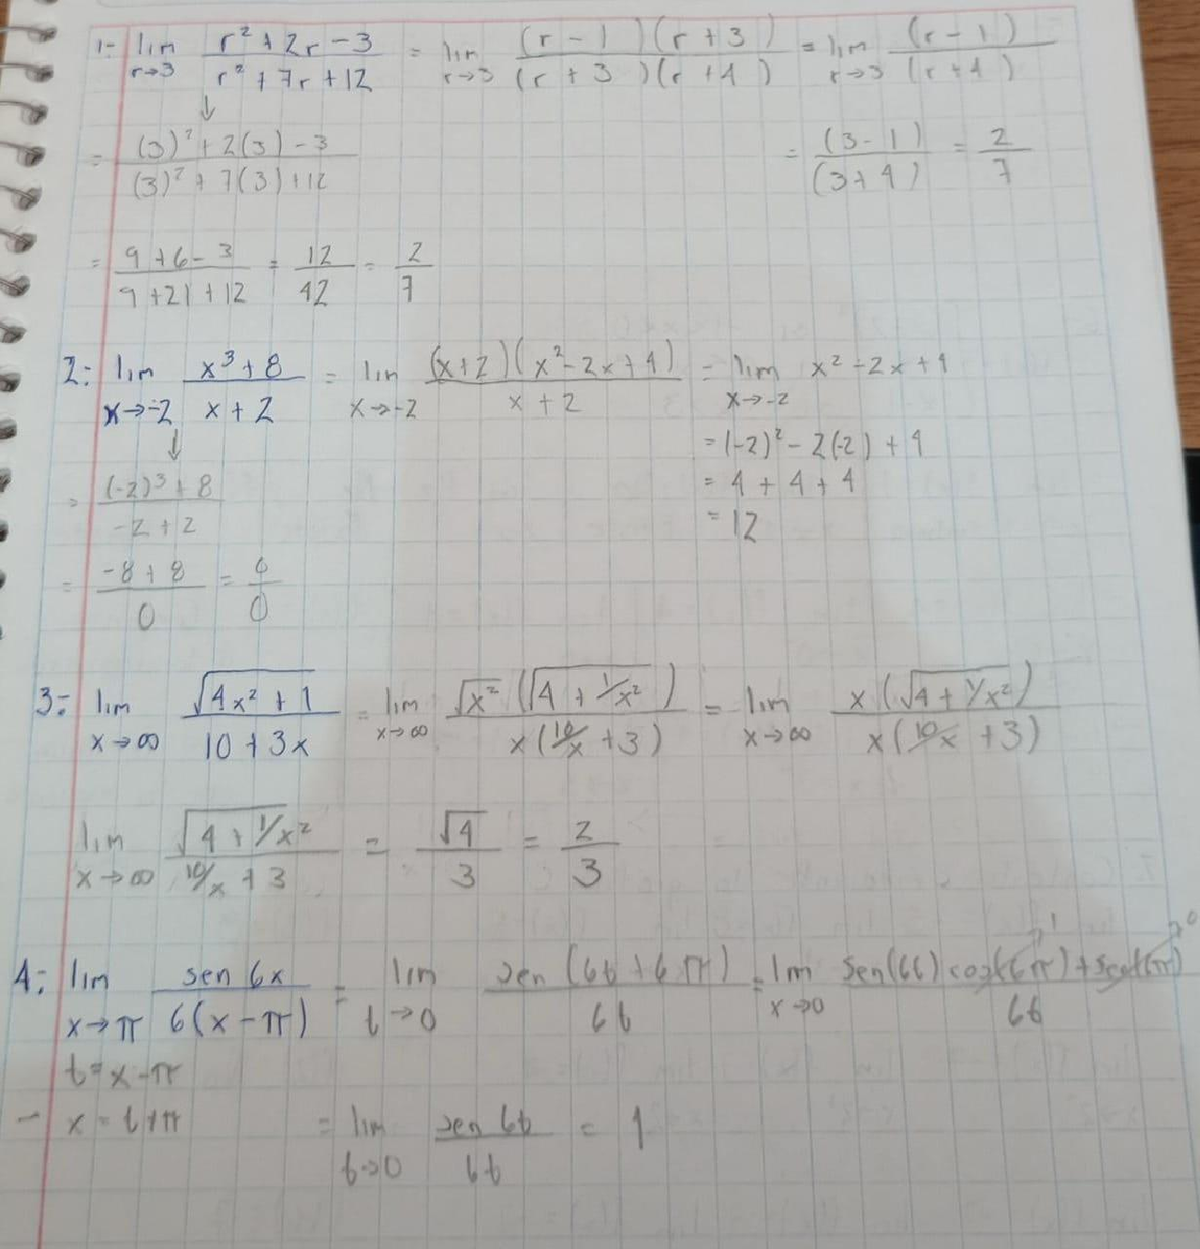 1- lim r→3 (r² + 2r - 3)/(r² + 7r + 12) = lim r→3 (r - 1)(r + 3)/(r + 3)(r + 4) = lim r→3 (r - 1)/(r + 4)
↓
= ((3)² + 2(3) - 3)/((3)² + 7(3) + 12) = (3 - 1)/(3 + 4) = 2/7
= (9 + 6 - 3)/(9 + 21 + 12) = 12/42 = 2/7
2: lim x→-2 (x³ + 8)/(x + 2) = lim x→-2 (x + 2)(x² - 2x + 4)/(x + 2) = lim x→-2 x² - 2x + 4
↓
= (-2)² - 2(-2) + 4
= ((-2)³ + 8)/(-2 + 2)
= 4 + 4 + 4
= 12
= (-8 + 8)/0 = 0/0
3: lim x→∞ √(4x² + 1)/(10 + 3x) = lim x→∞ √x² (√(4 + 1/x²))/x(10/x + 3) = lim x→∞ x(√(4 + 1/x²))/x(10/x + 3)
lim x→∞ √(4 + 1/x²)/(10/x + 3) = √4/3 = 2/3
4: lim x→π sen 6x/6(x - π) = lim t→0 sen (6t + 6π)/6t = lim x→0 sen(6t) cos(6π) +
t = x - π
- x = t + π = lim t→0 sen 6t/6t = 1